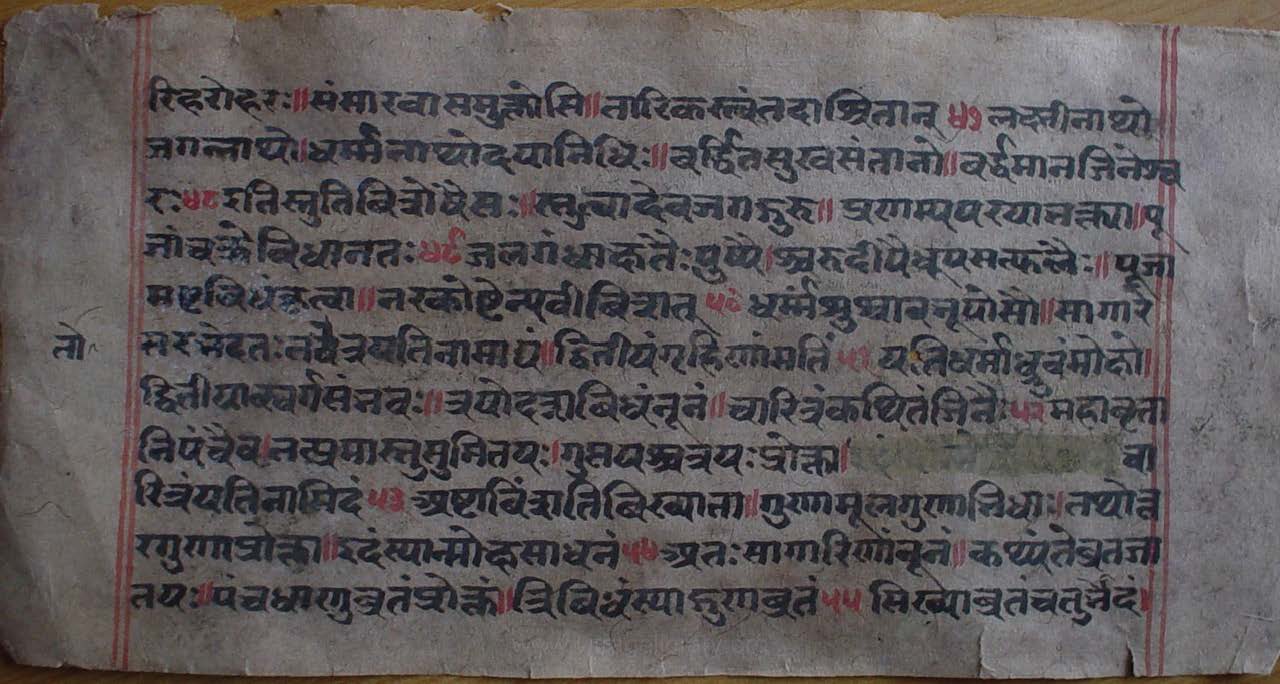 रिहरोहरः॥संसारवासमुक्तोसि॥तारिकस्त्वंतदाश्रितान् ४७ लक्ष्मीनाथो
जगन्नाथो।धर्म्मनाथोदयानिधिः॥वर्द्धितसुखसंतानो॥वर्द्धमानजिनेश्व
रः४८ इति स्तुतिवित्रोघैसः॥स्तुत्वादेवजगद्गुरु॥प्रणम्यपरयाभक्त्या॥पू
जांचक्रेविधानतः४९ जलगंधाक्षतैःपुष्पै।श्चरुदीपैधूपसत्फलैः॥पूजा
मष्टविधंकृत्वा॥नरकोष्टेन्यवीविशत् ५० धर्म्मशुश्रावनृपोसौ॥सागारे
तरभेदतःतत्रैवयतिनामाद्यं॥द्वितीयंगृहिणांमतिं ५१ यतिधर्माध्रुवंमोक्षो।
द्वितीयास्वर्गसंभवः॥त्रयोदशविधंनूनं॥चारित्रंकथितंजिनैः५२ महावृता
निपंचैव।तत्प्रमास्तुसुमितयः।गुप्तयश्चत्रयःप्रोक्ता। चा
रित्रंयतिनामिदं ५३ अष्टाविंशतिविख्याता॥गुणामूलगुणाभिधाः।तथोत्त
रगुणाप्रोक्ता॥इदंस्यान्मोक्षसाधनं ५४ अतःसागारिणांनूनं॥कथ्यंतेव्रतजा
तयः॥पंचधाणुव्रतंप्रोक्तं॥त्रिविधंस्याद्गुणव्रतं ५५ सिख्याव्रतंचतुर्भेदं।
तो